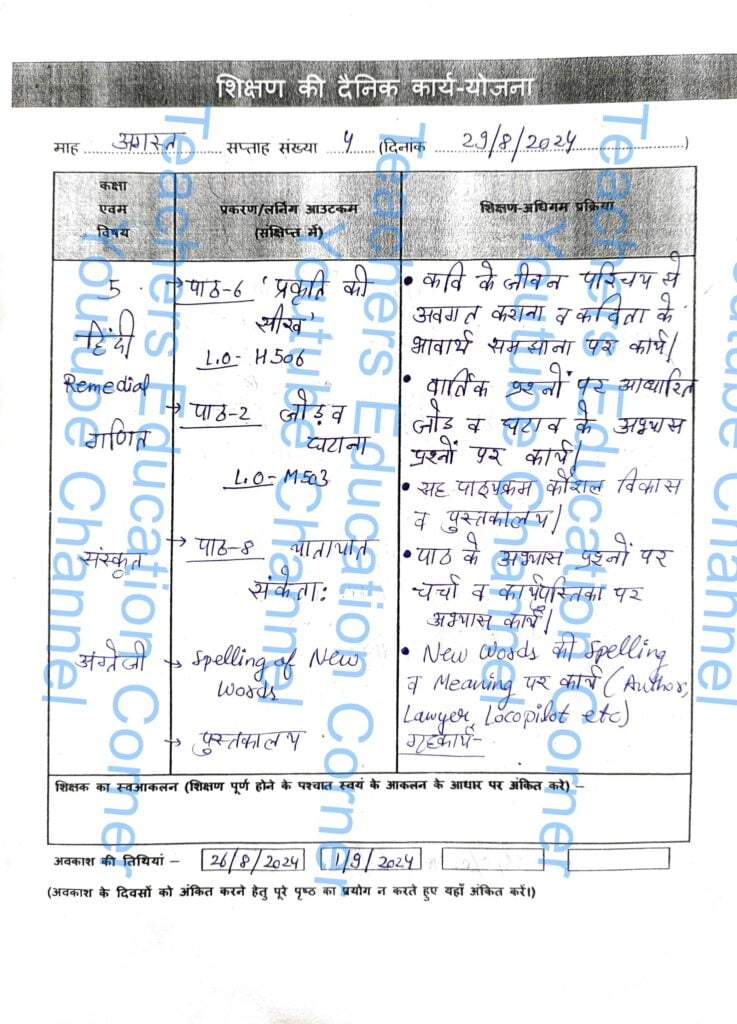 शिक्षण की दैनिक कार्य-योजना
माह अगस्त सप्ताह संख्या 4 (दिनांक 29/8/2024)
कक्षा
एवम
विषय
प्रकरण/लर्निंग आउटकम
(संक्षिप्त में)
शिक्षण-अधिगम प्रक्रिया
5
हिंदी
Remedial
गणित
संस्कृत
अंग्रेजी
→ पाठ-6 'प्रकृति की
सीख'
L.O- H506
→ पाठ-2 जोड़ व
घटाना
L.O- M503
→ पाठ-8 यातायात
संकेता:
→ Spelling of New
Words
→ पुस्तकालय
• कवि के जीवन परिचय से
अवगत कराना व कविता के
भावार्थ समझाना पर कार्य।
• वार्तिक प्रश्नों पर आधारित
जोड व घटाव के अभ्यास
प्रश्नों पर कार्य।
• सह पाठ्यक्रम कौशल विकास
व पुस्तकालय।
• पाठ के अभ्यास प्रश्नों पर
चर्चा व कार्यपुस्तिका पर
अभ्यास कार्य।
• New Words की Spelling
व Meaning पर कार्य (Author,
Lawyer, Locopilot etc)
गृहकार्य-
शिक्षक का स्वआकलन (शिक्षण पूर्ण होने के पश्चात स्वयं के आकलन के आधार पर अंकित करे) –
अवकाश की तिथियां – 26/8/2024 1/9/2024
(अवकाश के दिवसों को अंकित करने हेतु पूरे पृष्ठ का प्रयोग न करते हुए यहाँ अंकित करें।)
Teachers Education Corner
Youtube Channel
Teachers Education Corner
Youtube Channel
Teachers Education Corner
Youtube Channel